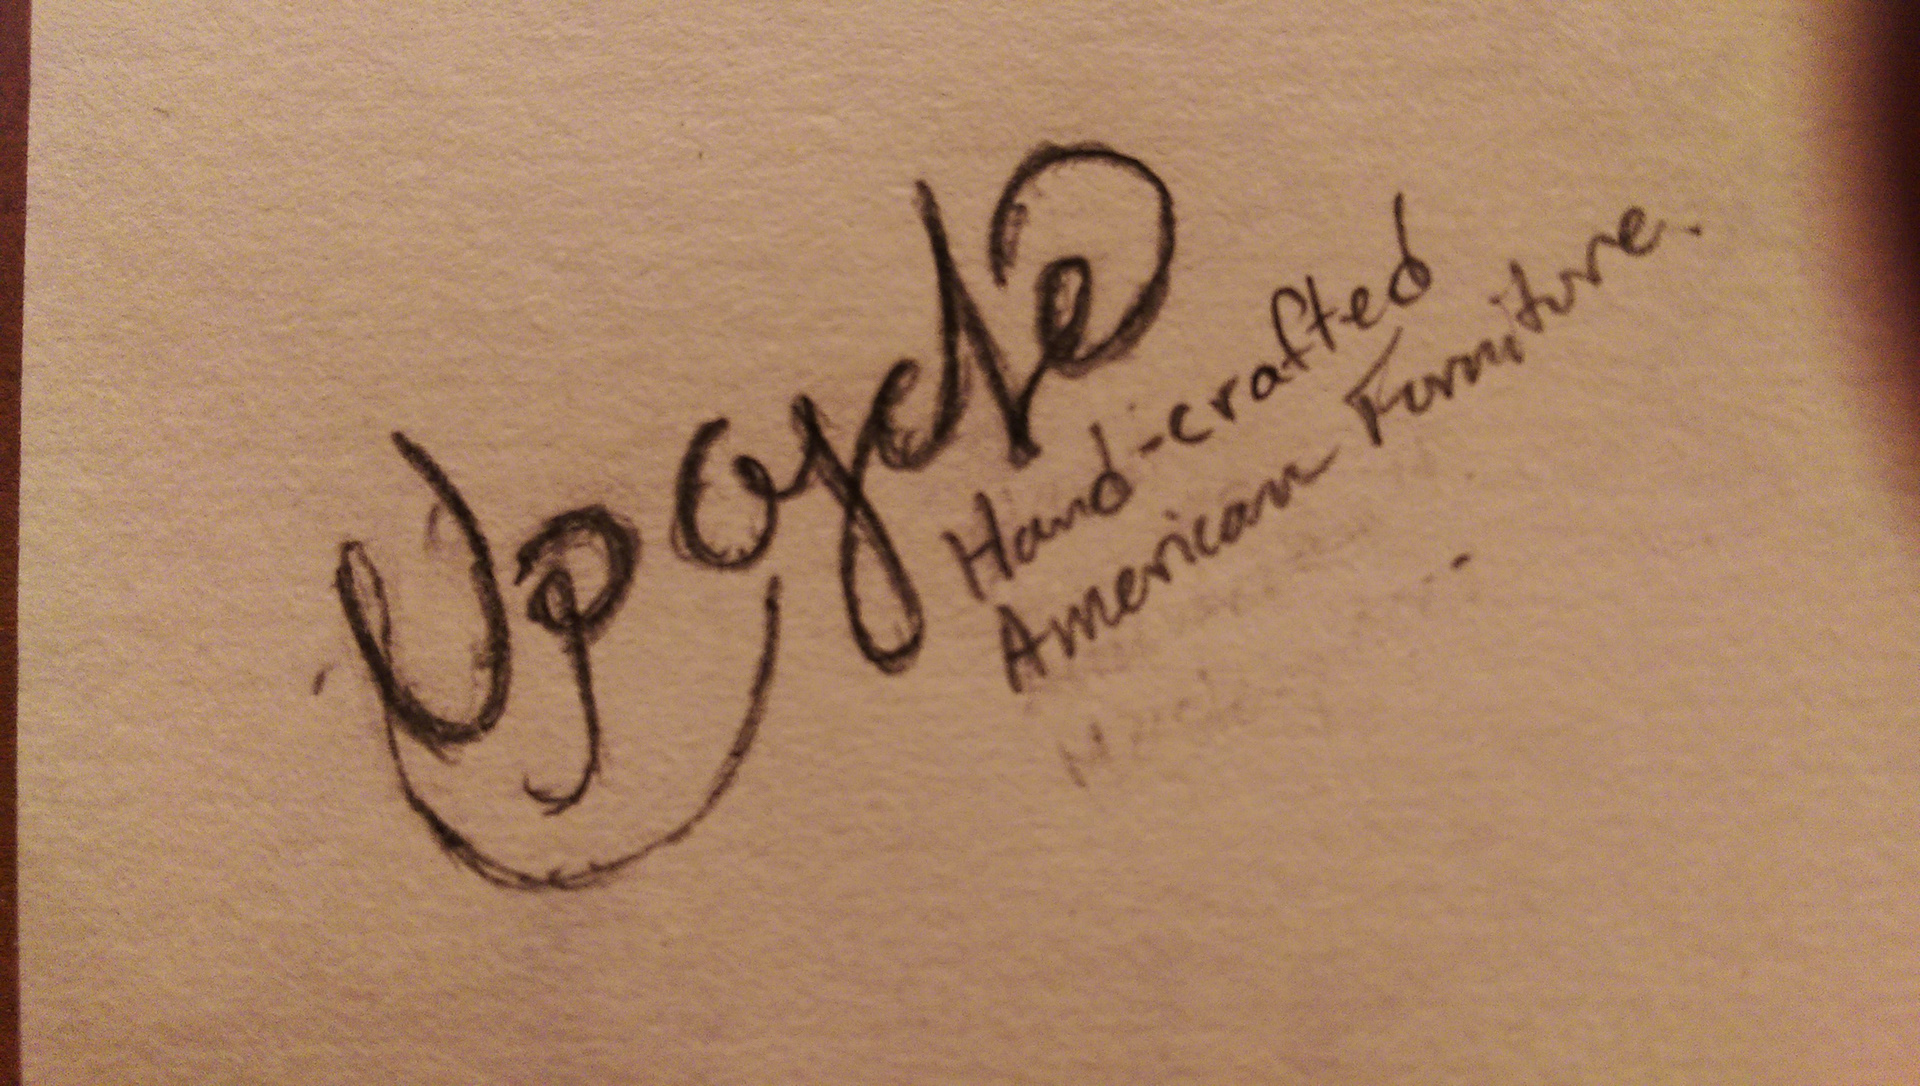 Upcycle
Hand-crafted
American Furniture.